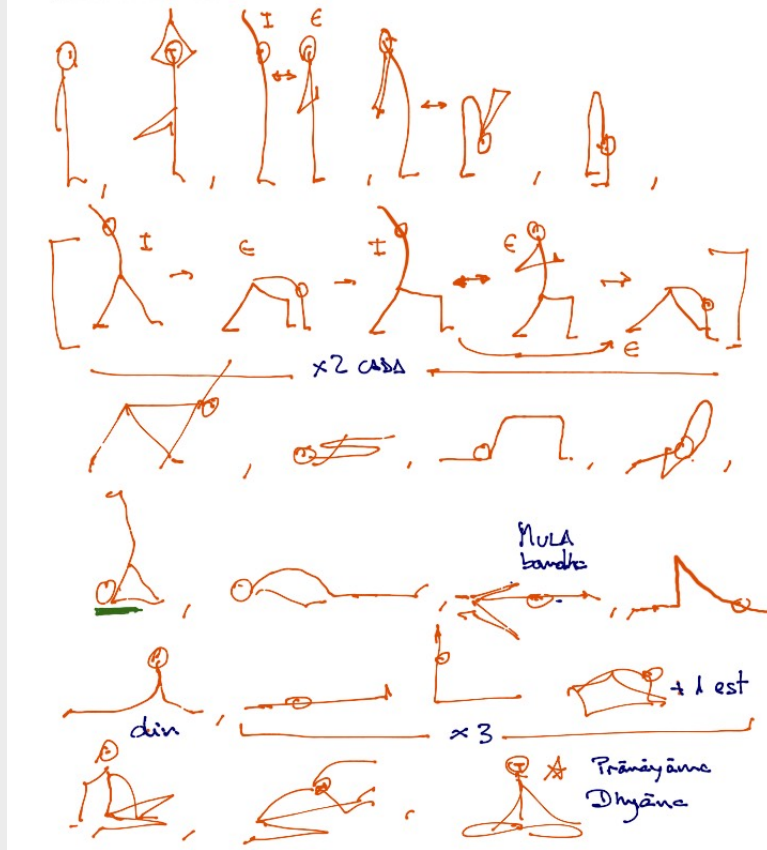 I E
I E I E
E
x2 CADA
MULA
bandha
+ 1 est
din
x3
Prānāyāma
Dhyāna